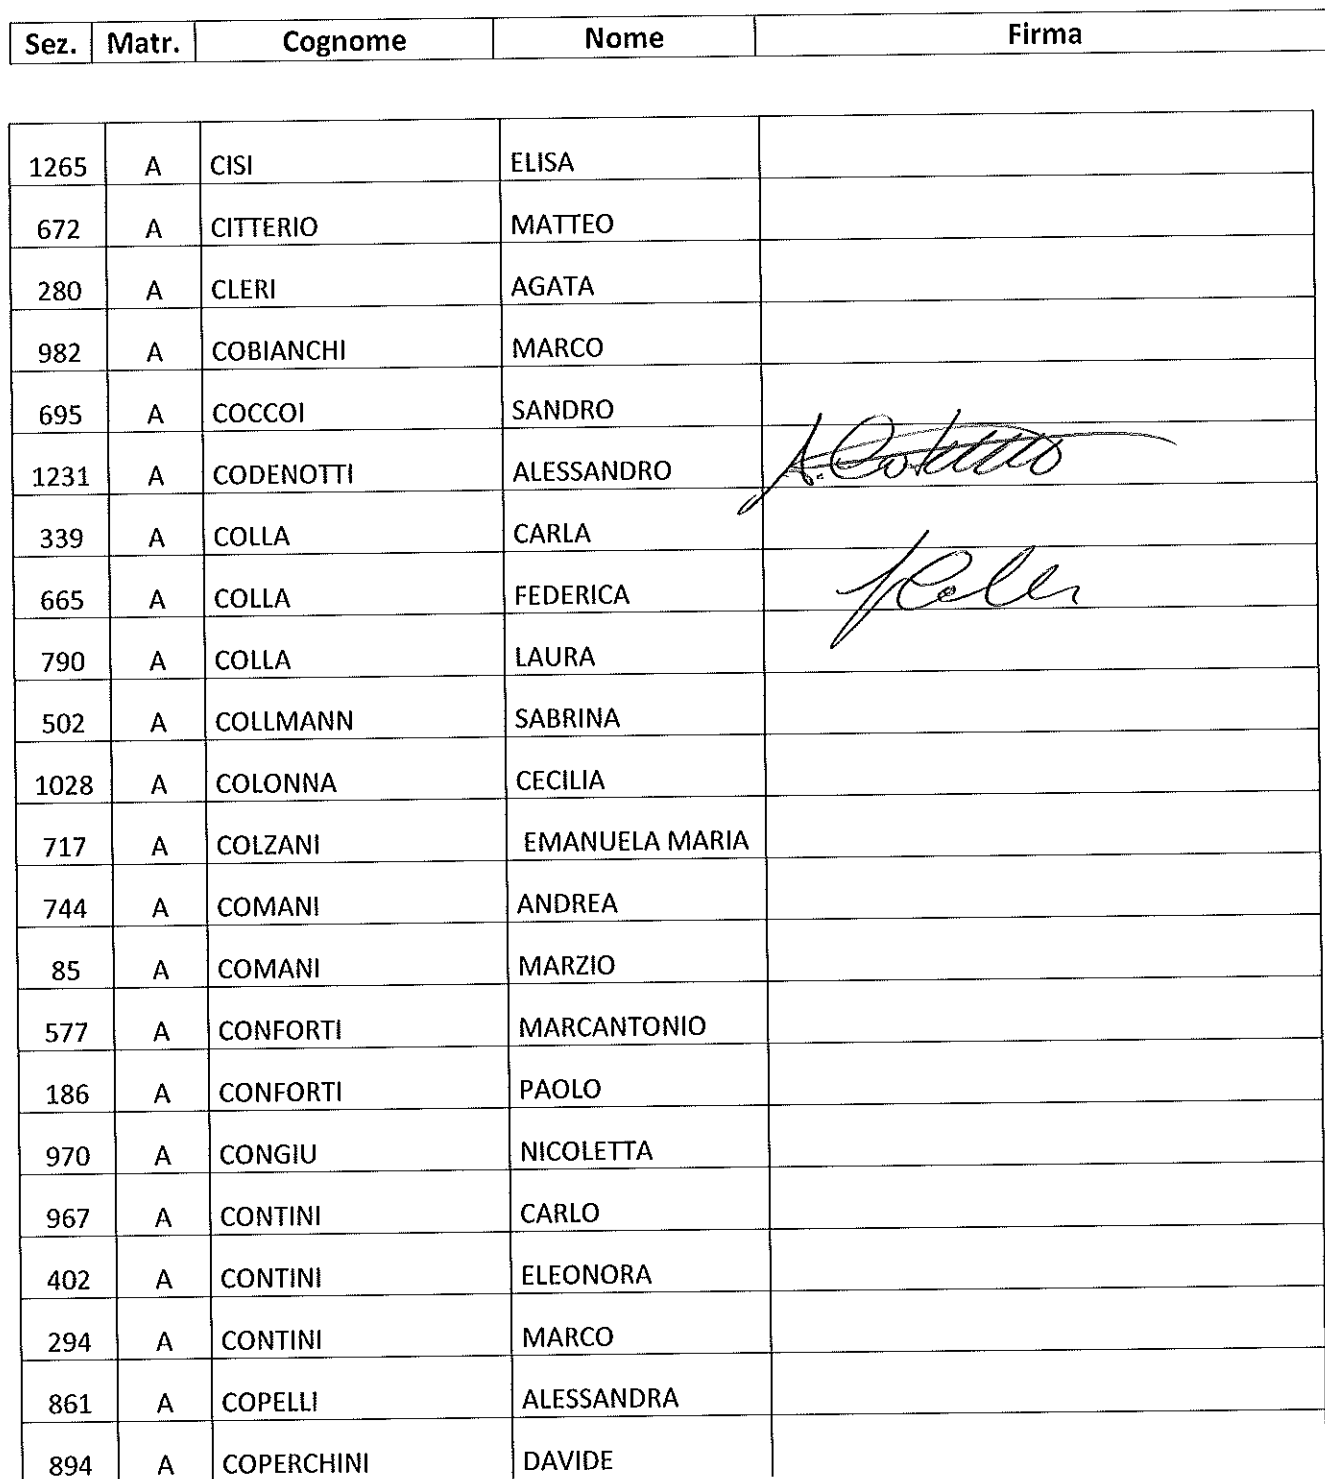 Sez. Matr. Cognome Nome Firma
1265 A CISI ELISA
672 A CITTERIO MATTEO
280 A CLERI AGATA
982 A COBIANCHI MARCO
695 A COCCOI SANDRO
1231 A CODENOTTI ALESSANDRO
339 A COLLA CARLA
665 A COLLA FEDERICA
790 A COLLA LAURA
502 A COLLMANN SABRINA
1028 A COLONNA CECILIA
717 A COLZANI EMANUELA MARIA
744 A COMANI ANDREA
85 A COMANI MARZIO
577 A CONFORTI MARCANTONIO
186 A CONFORTI PAOLO
970 A CONGIU NICOLETTA
967 A CONTINI CARLO
402 A CONTINI ELEONORA
294 A CONTINI MARCO
861 A COPELLI ALESSANDRA
894 A COPERCHINI DAVIDE